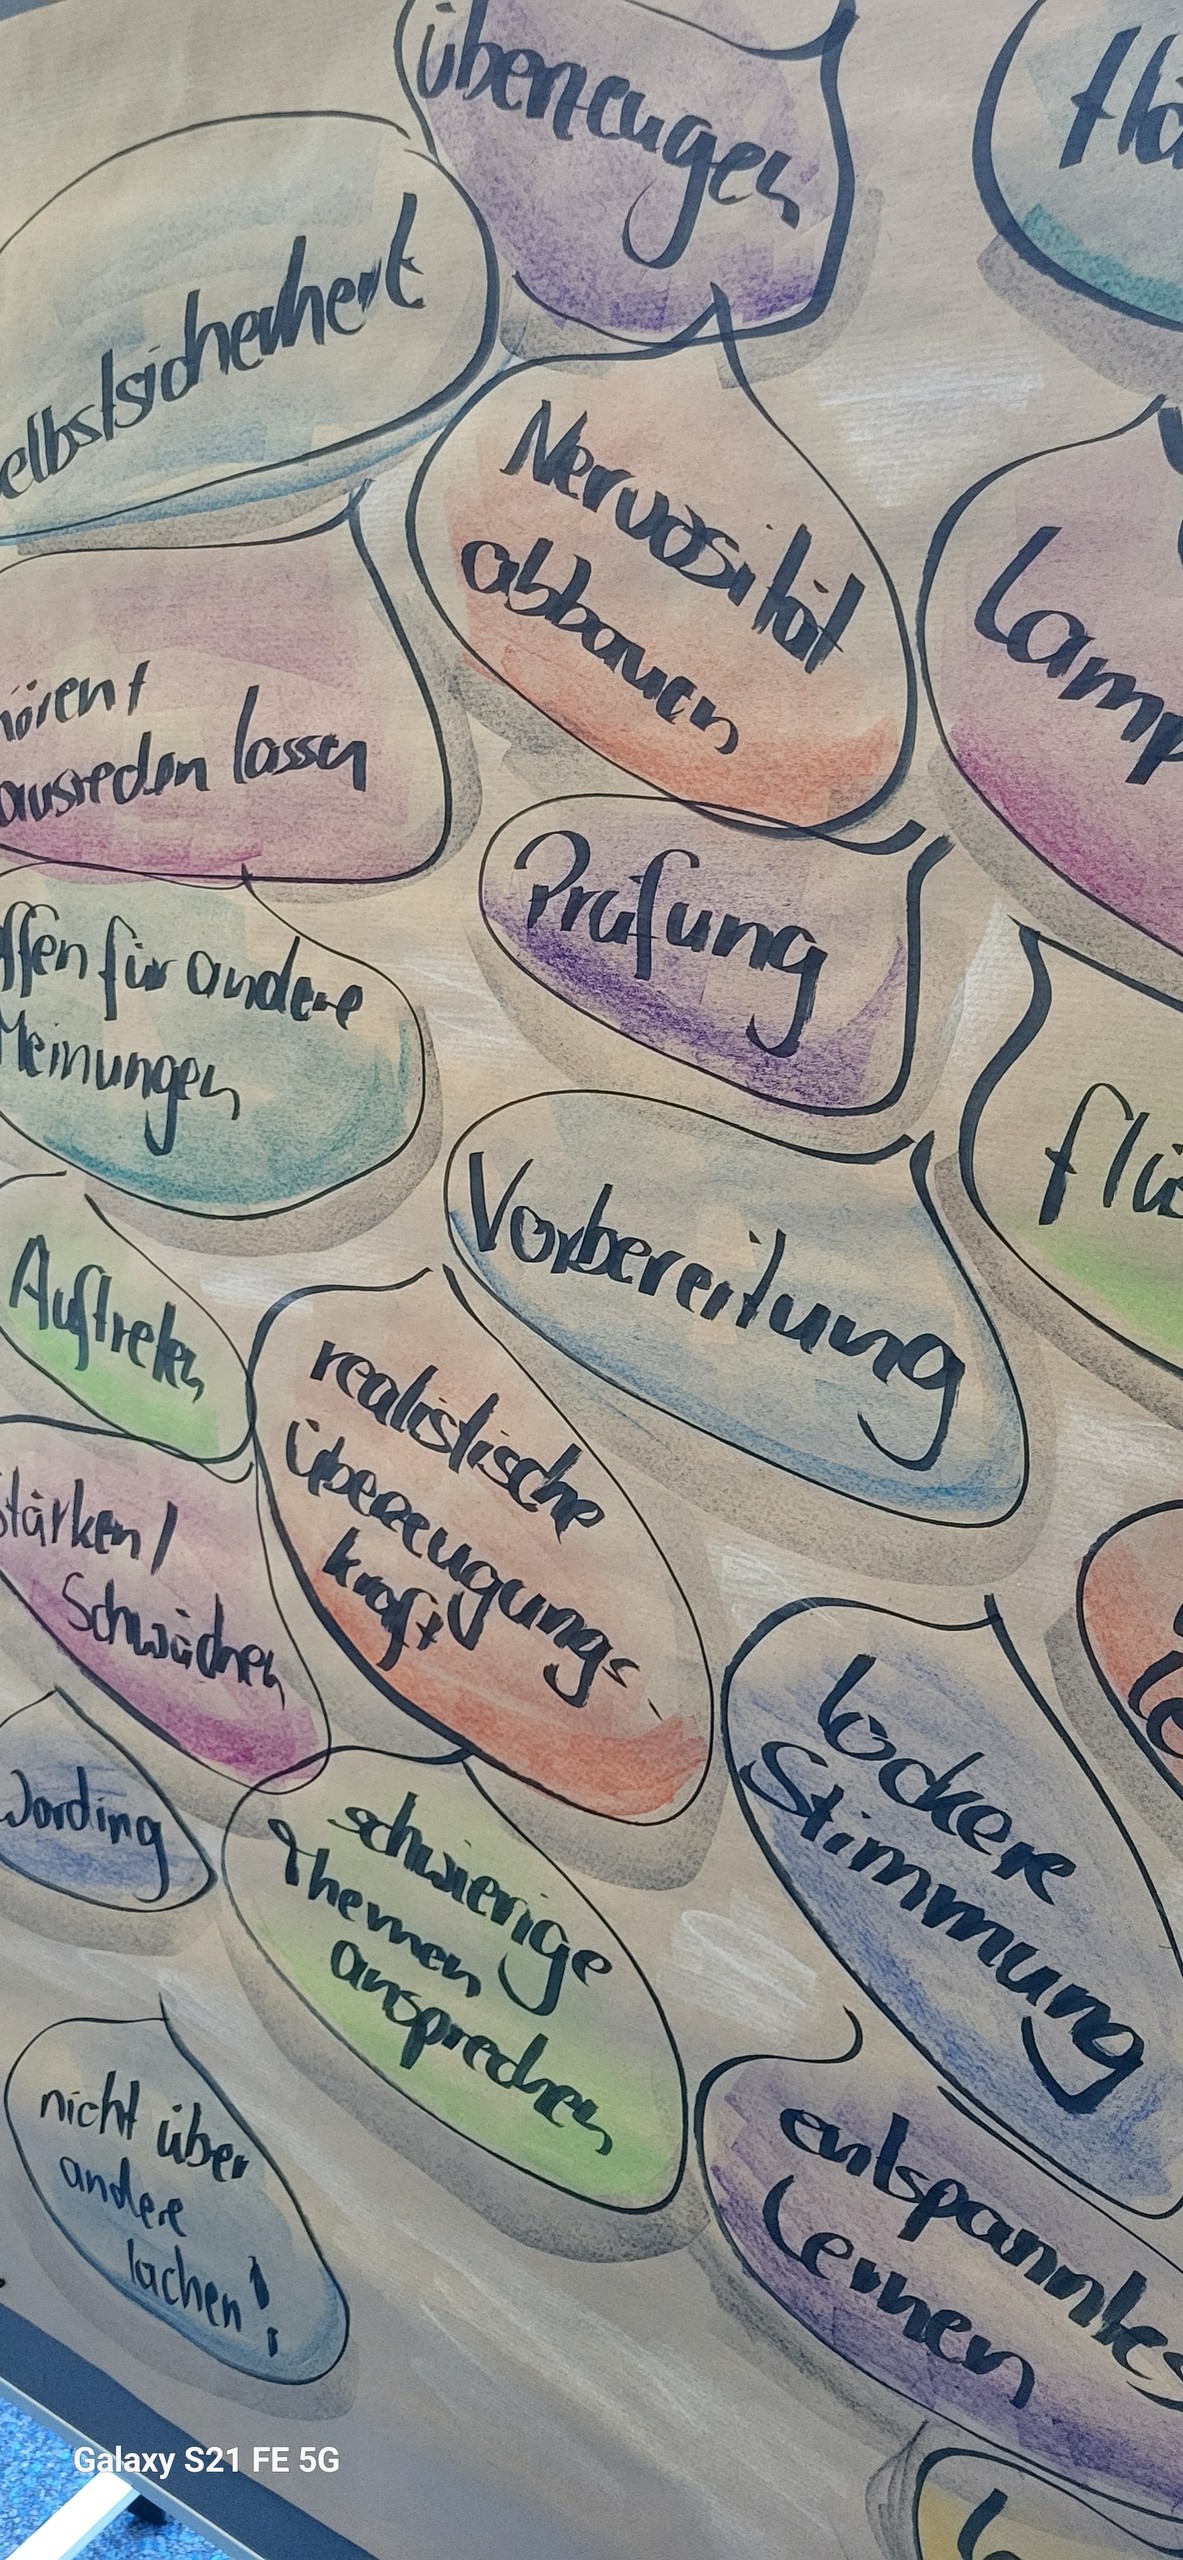 überzeugen
elbstsicherheit
Nervosität
abbauen
ausreden lassen
Prüfung
ffen für andere
Meinungen
Vorbereitung
Auftreten
realistische
Überzeugungs-
kraft
Stärken/
Schwächen
lockere
Stimmung
Wording
schwierige
Themen
ansprechen
nicht über
andere
lachen!
entspanntes
Lernen
Galaxy S21 FE 5G